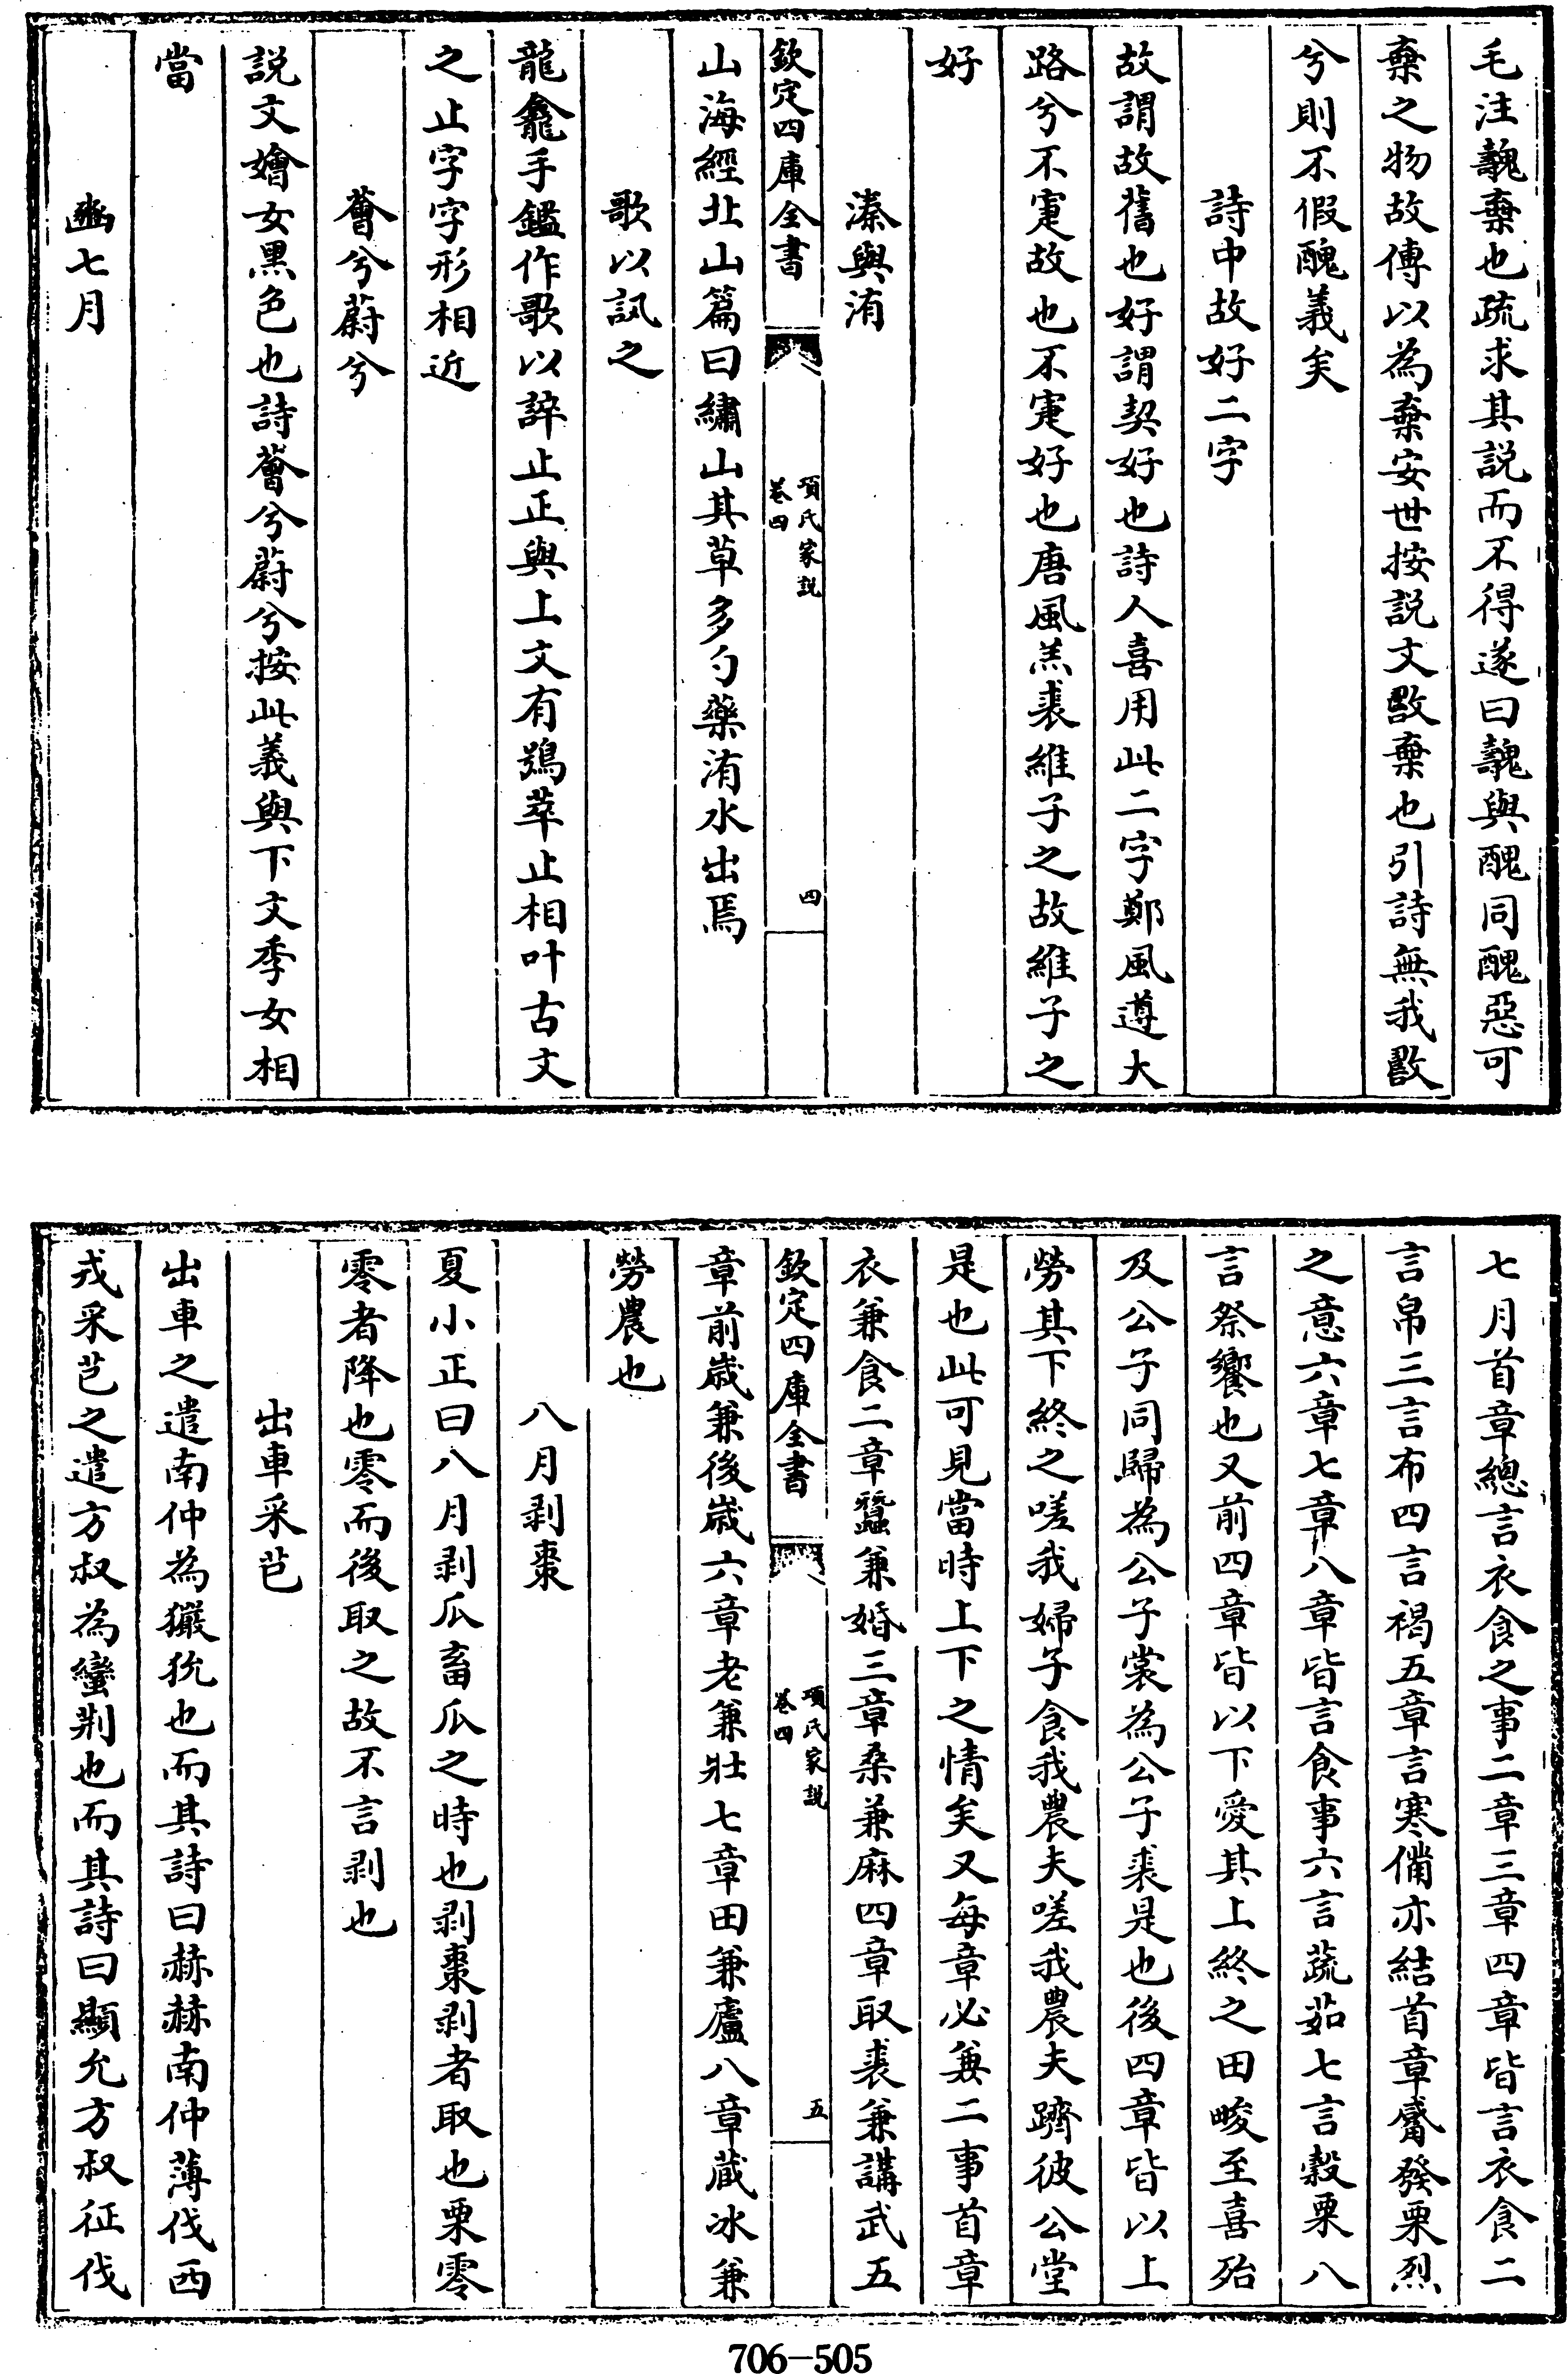 毛注魗棄也疏求其説而不得遂曰魗與醜同醜惡可
棄之物故傳以為棄安世按説文𢿾棄也引詩無我𢿾
兮則不假醜義矣
詩中故好二字
故謂故舊也好謂契好也詩人喜用此二字鄭風遵大
路兮不寁故也不寁好也唐風羔裘維子之故維子之
好
溱與洧
欽定四庫全書
項氏家説
卷四
四
山海經北山篇曰繡山其草多勺藥洧水出焉
歌以訊之
龍龕手鑑作歌以誶止正與上文有鴞萃止相叶古文
之止字字形相近
薈兮蔚兮
説文嬒女黑色也詩薈兮蔚兮按此義與下文季女相
當
豳七月
七月首章總言衣食之事二章三章四章皆言衣食二
言帛三言布四言褐五章言寒備亦結首章觱發栗烈
之意六章七章八章皆言食事六言蔬茹七言穀粟八
言祭饗也又前四章皆以下愛其上終之田畯至喜殆
及公子同歸為公子裳為公子裘是也後四章皆以上
勞其下終之嗟我婦子食我農夫嗟我農夫躋彼公堂
是也此可見當時上下之情矣又每章必兼二事首章
衣兼食二章蠶兼婚三章桑兼麻四章取裘兼講武五
欽定四庫全書
項氏家説
卷四
五
章前歳兼後歳六章老兼壯七章田兼廬八章蔵冰兼
勞農也
八月剥棗
夏小正曰八月剥瓜畜瓜之時也剥棗剥者取也栗零
零者降也零而後取之故不言剥也
出車采芑
出車之遣南仲為玁狁也而其詩曰赫赫南仲薄伐西
戎采芑之遣方叔為蠻荆也而其詩曰顯允方叔征伐
706-505